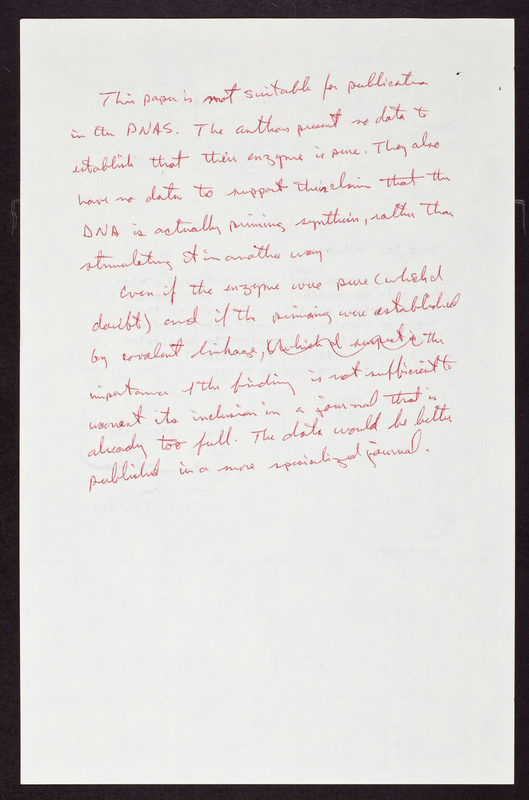 This paper is not suitable for publication
in the PNAS. The authors present no data to
establish that their enzyme is pure. They also
have no data to support their claim that the
DNA is actually priming synthesis, rather than
stimulating it in another way
Even if the enzyme were pure (which I
doubt) and if the priming were established
by covalent linkage, (which I suspect is the
importance of the finding is not sufficient to
warrant its inclusion in a journal that is
already too full. The data would be better
published in a more specialized journal.